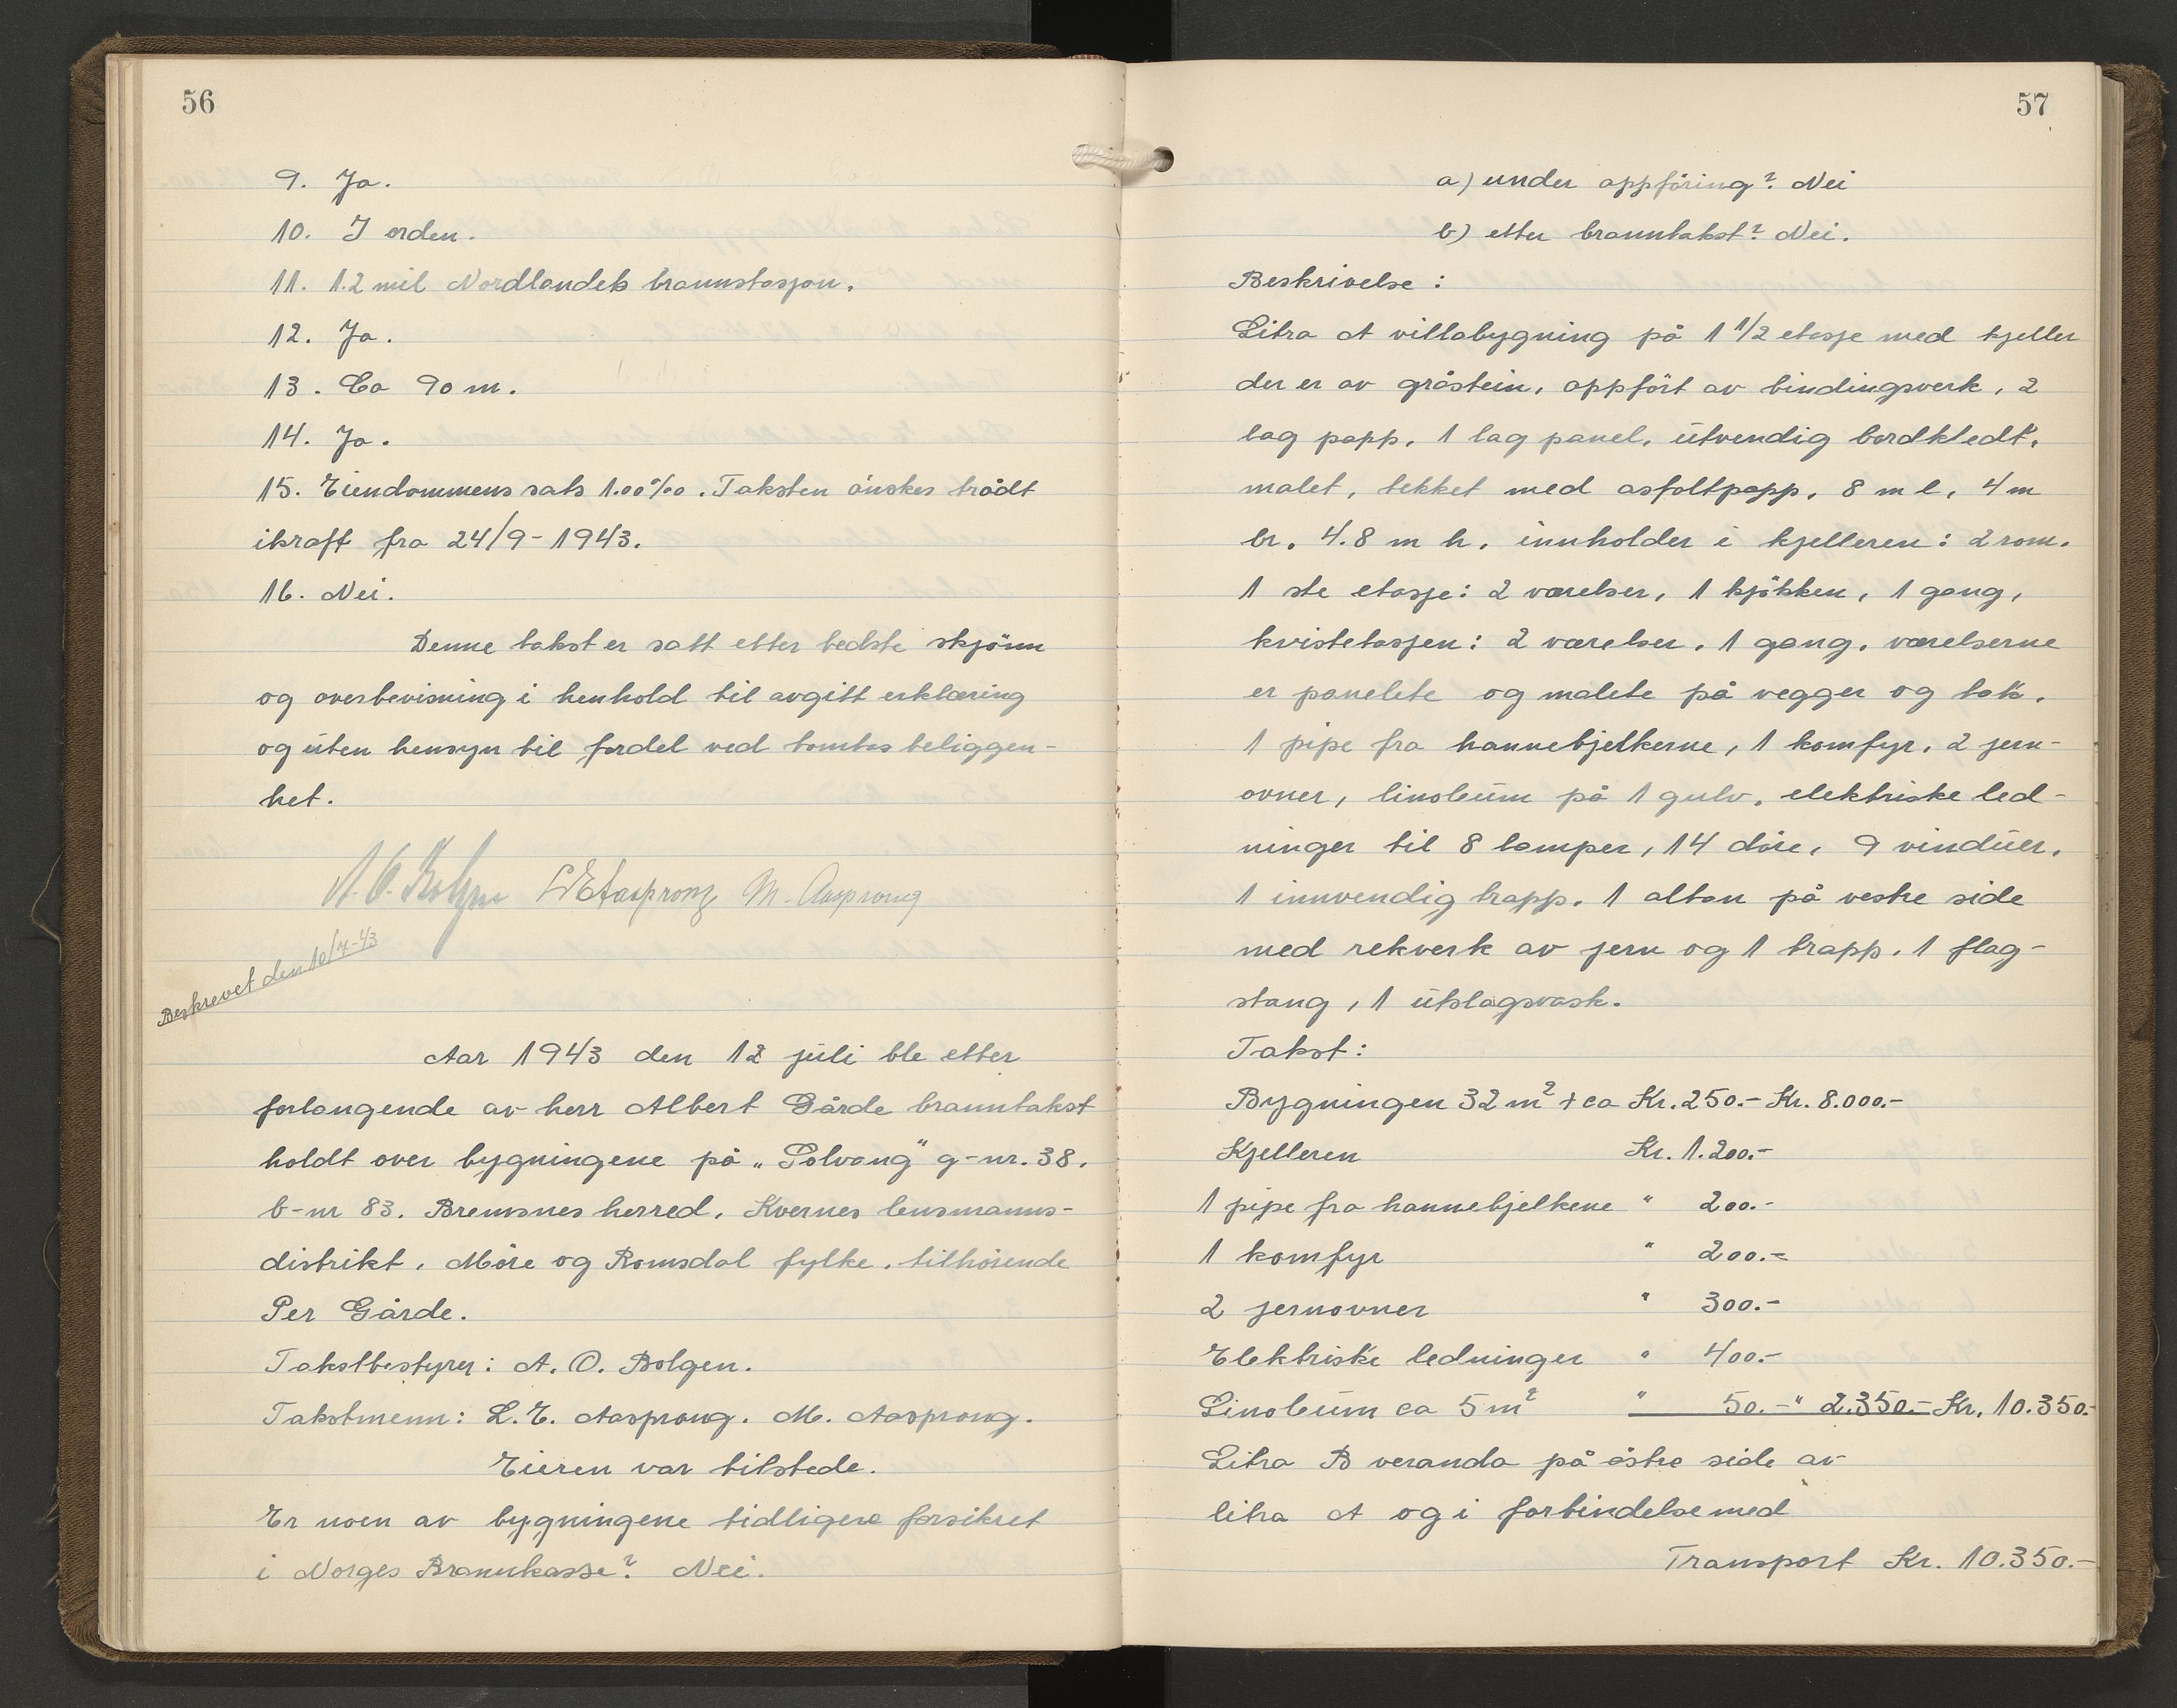 56
9. Ja.
10. I orden.
11. 1.2 mil Nordlandets brannstasjon.
12. Ja.
13. Ca 90 m.
14. Ja.
15. Eiendommens sats 1.00‰. Taksten ønskes trådt
ikraft fra 24/9-1943.
16. Nei.
Denne takst er satt etter bedste skjønn
og overbevisning i henhold til avgitt erklæring
og uten hensyn til fordel ved tomtas beliggen-
het.
A. O. Bolgen L E Aasprong M. Aasprong
Beskrevet den 10/7-43
Aar 1943 den 12 juli ble etter
forlangende av herr Albert Gårde branntakst
holdt over bygningene på „Solvang" g-nr. 38.
b-nr 83. Bremsnes herred. Kvernes lensmanns-
distrikt. Møre og Romsdal fylke. tilhørende
Per Gårde.
Takstbestyrer: A. O. Bolgen.
Takstmenn: L. E. Aasprong. M. Aasprong.
Eieren var tilstede.
Er noen av bygningene tidligere forsikret
i Norges Brannkasse? Nei.
57
a) under oppføring? Nei
b) etter branntakst? Nei.
Beskrivelse:
Litra A villabygning på 1 1/2 etasje med kjeller
der er av gråstein, oppført av bindingsverk, 2
lag papp, 1 lag panel, utvendig bordkledt,
malet, tekket med asfaltpapp, 8 m l, 4 m
br. 4.8 m h. innholder i kjelleren: 2 rom.
1 ste etasje: 2 værelser, 1 kjøkken, 1 gang,
kvistetasjen: 2 værelser. 1 gang. værelserne
er panelete og malete på vegger og tak.
1 pipe fra hannebjelkerne, 1 komfyr. 2 jern-
ovner, linoleum på 1 gulv. elektriske led-
ninger til 8 lamper, 14 døre, 9 vinduer,
1 innvendig trapp. 1 altan på vestre side
med rekverk av jern og 1 trapp. 1 flag-
stang, 1 utslagsvask.
Takst:
Bygningen 32 m² + ca Kr. 250.- Kr. 8.000.-
Kjelleren Kr. 1.200.-
1 pipe fra hannebjelkene " 200.-
1 komfyr " 200.-
2 jernovner " 300.-
Elektriske ledninger " 400.-
Linoleum ca 5 m² " 50.- " 2.350.- Kr. 10.350.-
Litra B veranda på østre side av
litra A og i forbindelse med
Transport Kr. 10.350.-